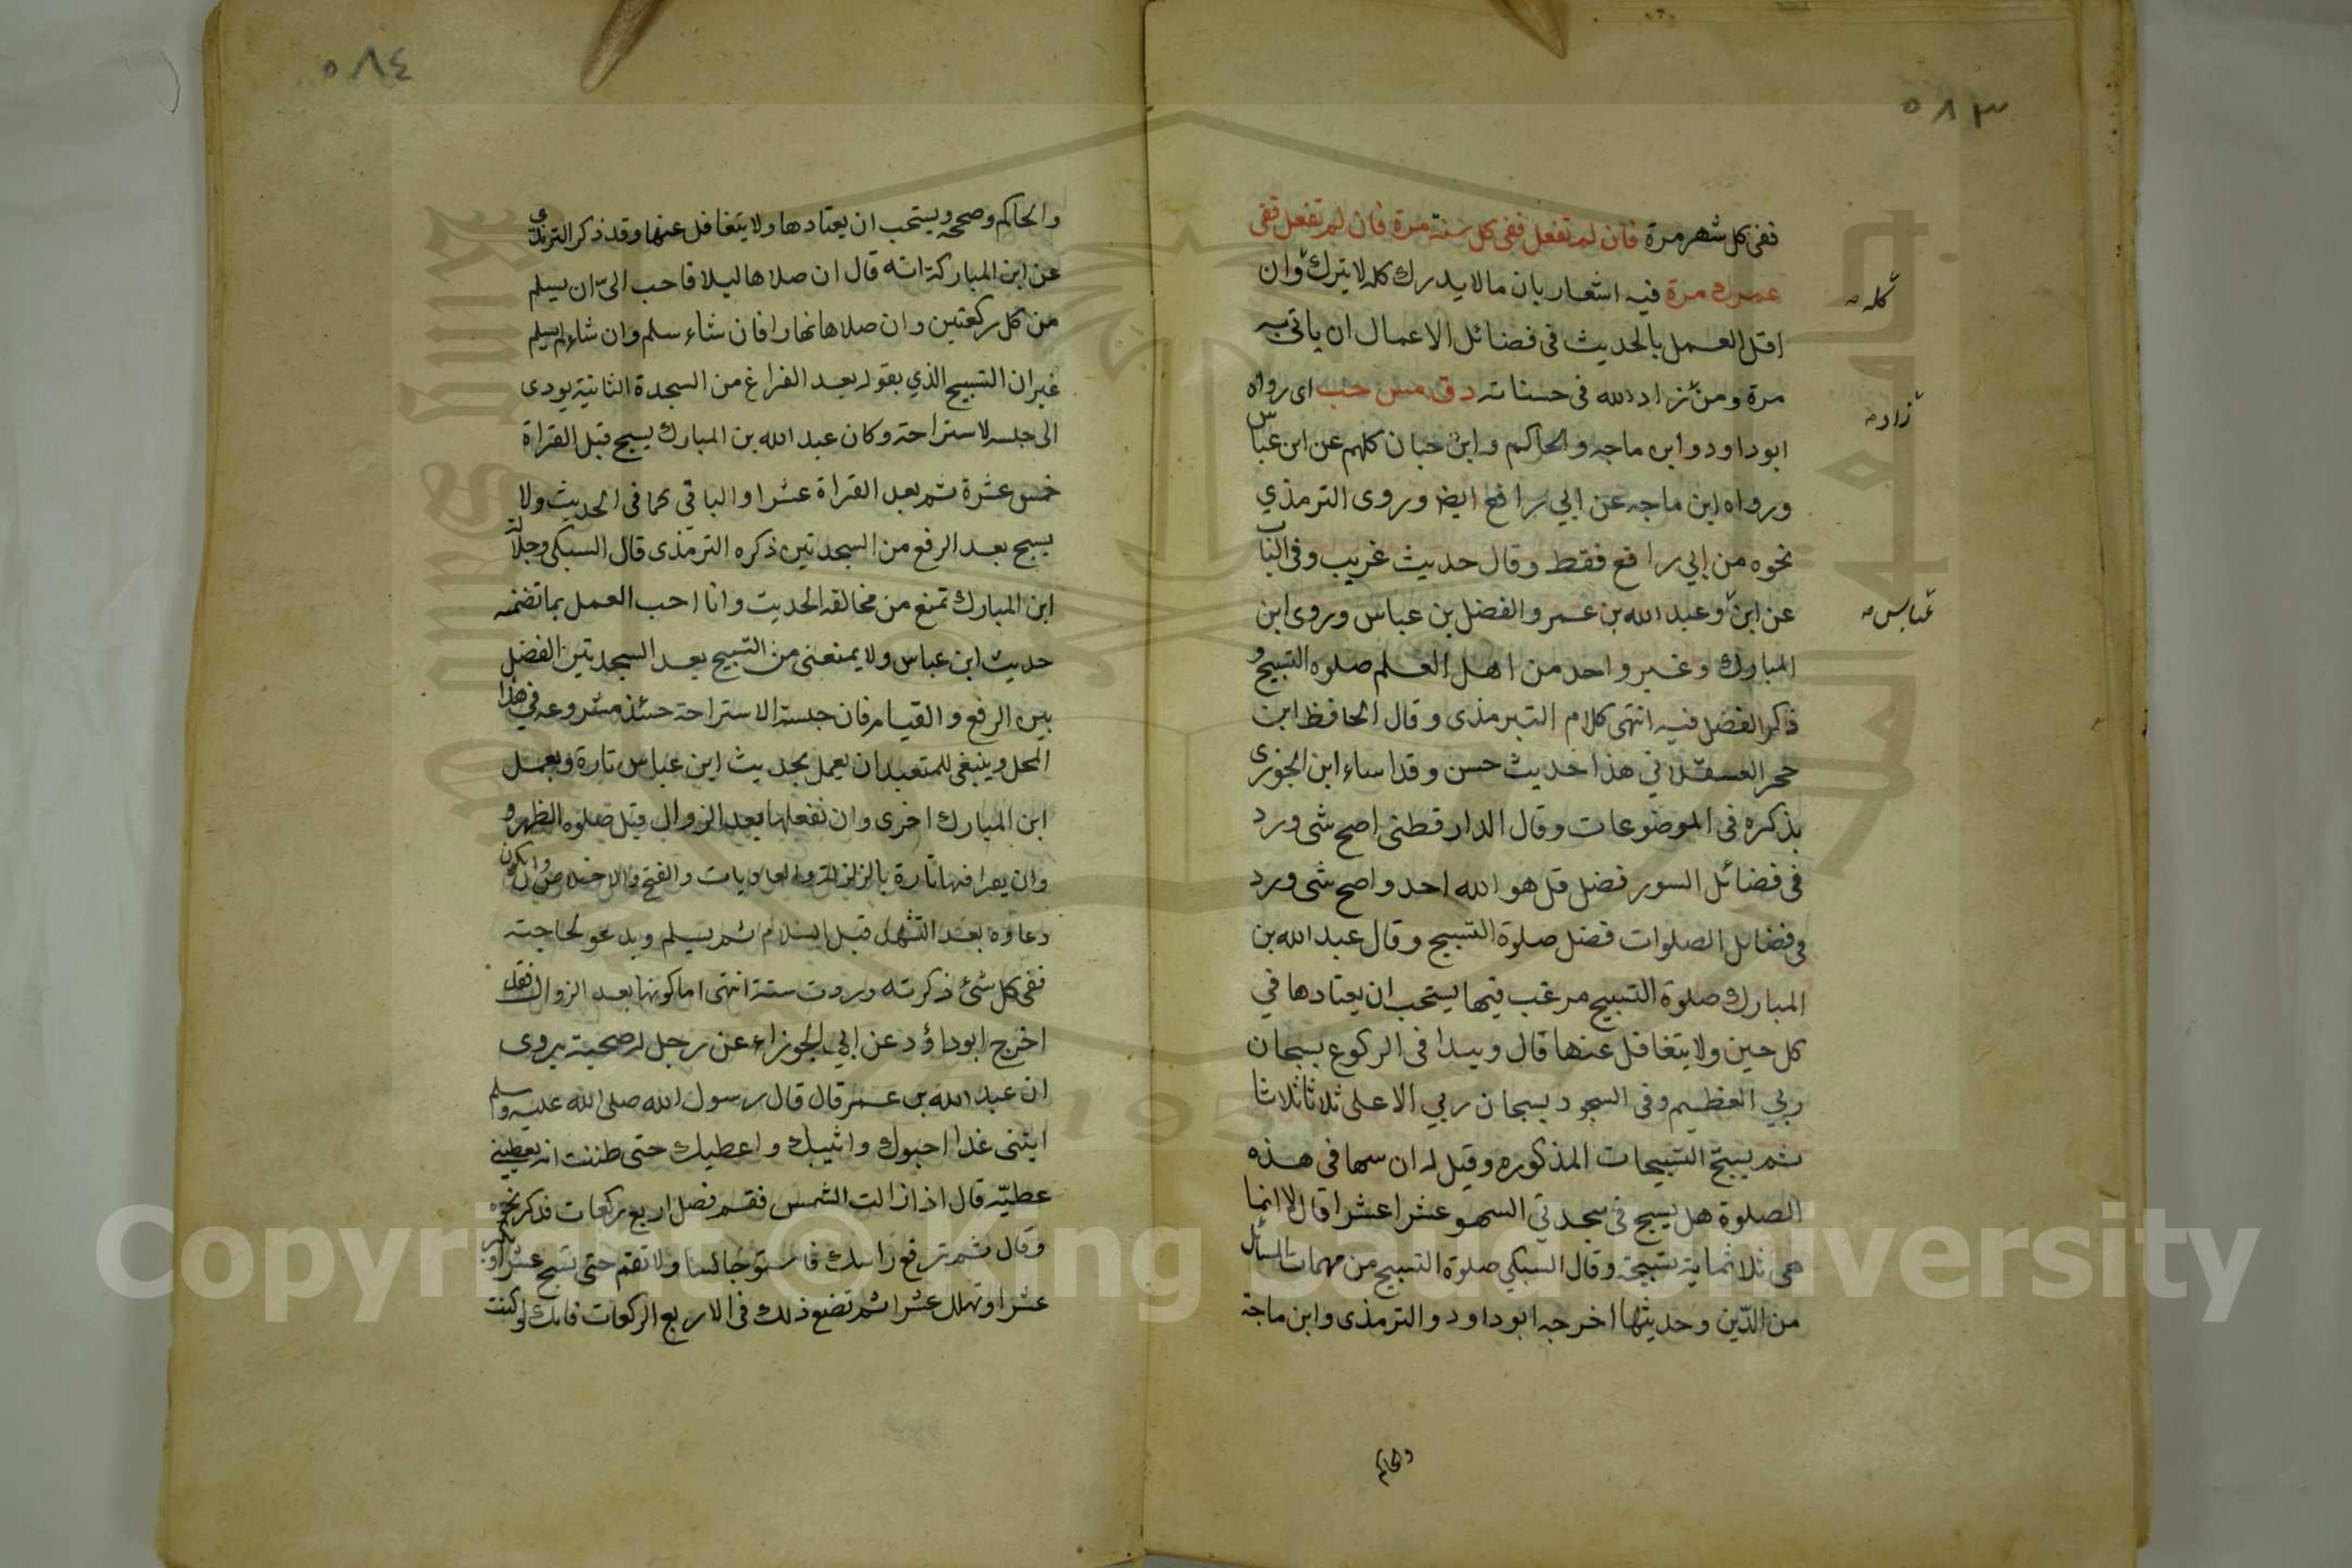 ٥٨٣
ففى كل شهر مرة فان لم تفعل ففى كل سنة مرة فان لم تفعل ففى
عمرك مرة فيه اشعار بان مالا يدرك كله لا يترك وان
كله
اقل العمل بالحديث فى فضائل الاعمال ان ياتى به
مرة ومن زاد الله فى حسناته د ق مس حب اى رواه
زاد
ابو داود وابن ماجه والحاكم وابن حبان كلهم عن ابن عباس
ورواه ابن ماجه عن ابي رافع ايضا وروى الترمذي
نحوه من ابي رافع فقط وقال حديث غريب وفى الباب
عن ابن وعبد الله بن عمر والفضل بن عباس وروى ابن
عباس
المبارك وغير واحد من اهل العلم صلوه التسبيح و
ذكر الفضل فيه انتهى كلام الترمذى وقال الحافظ ابن
حجر العسقلانى هذا حديث حسن وقد اساء ابن الجوزى
بذكره فى الموضوعات وقال الدارقطنى اصح شى ورد
فى فضائل السور فضل قل هو الله احد واصح شى ورد
فى فضايل الصلوات فضل صلوة التسبيح وقال عبد الله بن
المبارك صلوة التسبيح مرغب فيها يستحب ان يعتادها في
كل حين ولا يتغافل عنها قال ويبدا فى الركوع بسبحان
ربي العظيم وفى السجود بسبحان ربي الاعلى ثلاثا ثلاثا
ثم يسبح التسبيحات المذكوره وقيل له ان سها فى هذه
الصلوة هل يسبح فى سجدتي السهو عشرا عشرا قال لا انما
هى ثلاثماية تسبيحة وقال السبكي صلوة التسبيح من مهمات المسائل
من الدّين وحديثها اخرجه ابو داود والترمذى وابن ماجة
والحاكم
٥٨٤
والحاكم وصححه ويستحب ان يعتادها ولا يتغافل عنها وقد ذكر الترمذى
عن ابن المباركة انه قال ان صلاها ليلا فاحب الىّ ان يسلم
من كل ركعتين وان صلاها نهارا فان شاء سلم وان شاء لم يسلم
غير ان التسبيح الذي يقوله بعد الفراغ من السجدة الثانية يودى
الى جلسه لاستراحة وكان عبد الله بن المبارك يسبح قبل القراة
خمس عشرة ثم بعد القراة عشرا والباقى كما فى الحديث ولا
يسبح بعد الرفع من السجدتين ذكره الترمذى قال السبكى وجلالة
ابن المبارك تمنع من مخالفه الحديث وانا احب العمل بما تضمنه
حديث ابن عباس ولا يمنعنى من التسبيح بعد السجدتين الفضل
بين الرفع والقيام فان جلسة الاستراحة حينئذ مشروعه فى هذا
المحل وينبغى للمتعبد ان يعمل بحديث ابن عباس تارة ويعمل
ابن المبارك اخرى وان نفعلها بعد الزوال قبل صلوه الظهر و
وان يقرا فيها تارة بالزلزلة والعاديات والفتح والاخلاص وان يكون
دعاوه بعد التشهد قبل السلام ثم يسلم ويدعو لحاجته
ففى كل شئ ذكرته وردت سنة انتهى اما كونها بعد الزوال فقد
اخرج ابو داؤد عن ابي الجوزاء عن رجل له صحبة يروى
ان عبد الله بن عمر قال قال رسول الله صلى الله عليه وسلم
ايتنى غدا احبوك واثيبك واعطيك حتى ظننت انه يعطينى
عطيّه قال اذا زالت الشمس فقم فصل اربع ركعات فذكر نحوه
وقال ثم ترفع راسك فاستو جالسا ولا تقم حتى تسبح عشرا
عشرا وتهلل عشرا ثم تضع ذلك فى الاربع الركعات فانك لو كنت